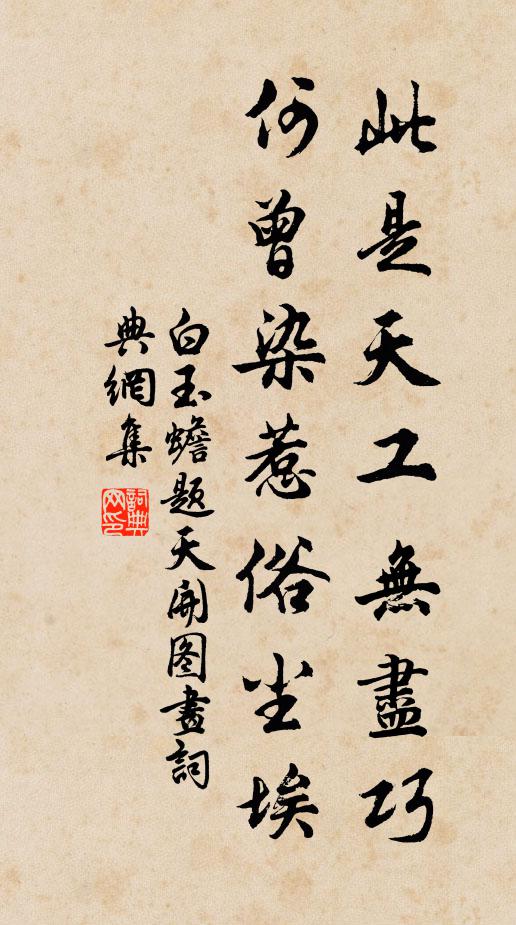 此是天工無盡巧
何曾染惹俗尘埃
白玉蟾题天开图畫詞
典網集
詞典网印